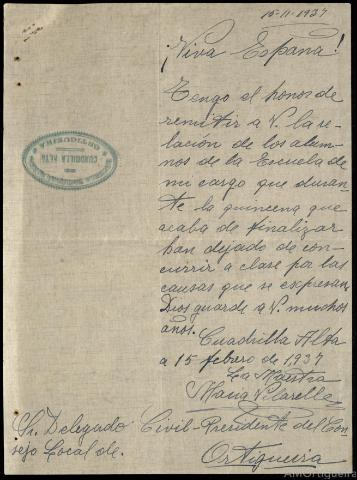 15-II-1937
¡Viva España!
Tengo el honor de
remitir a V. la re-
lación de los alum-
nos de la Escuela de
mi cargo que duran-
te la quincena que
acaba de finalizar
han dejado de con-
currir a clase por las
causas que se expresan.
Dios guarde a V. muchos
años.
Cuadrilla Alta
a 15 febrero de 1937
La Maestra
Maria
Sr. Delegado Civil-Presidente del Con-
sejo Local de
Ortigueira
CUADRILLA ALTA
ORTIGUEIRA
AMOrtigueira